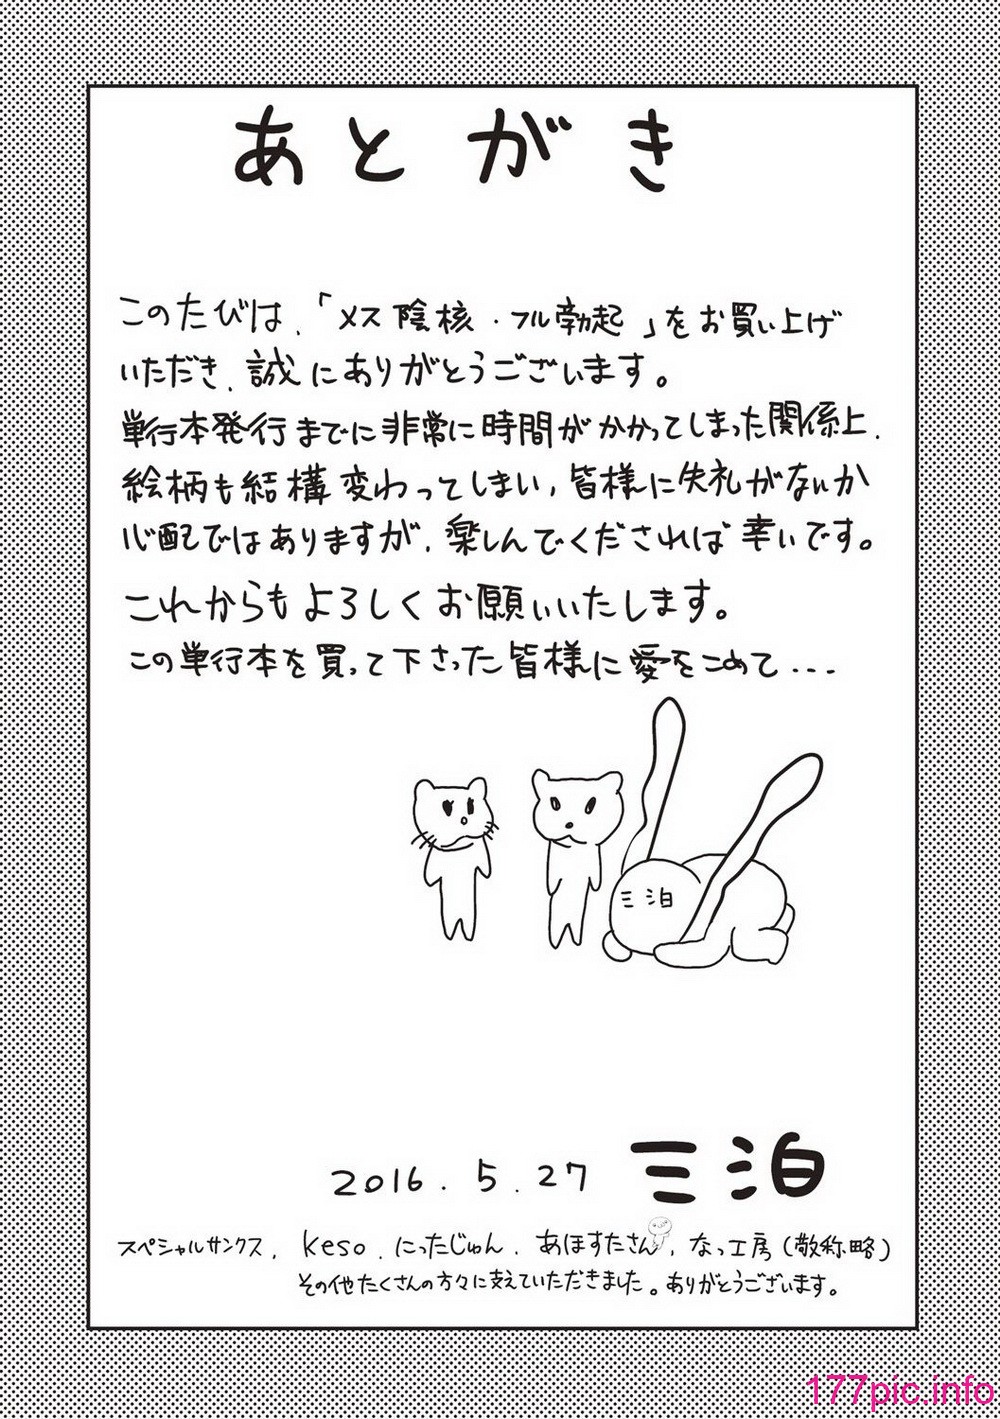 あとがき
このたびは、「メス陰核・フル勃起」をお買い上げ
いただき、誠にありがとうございます。
単行本発行までに非常に時間がかかってしまった関係上、
絵柄も結構変わってしまい、皆様に失礼がないか
心配ではありますが、楽しんでくだされば幸いです。
これからもよろしくお願いいたします。
この単行本を買って下さった皆様に愛をこめて...
三泊
2016.5.27 三泊
スペシャルサンクス、keso、にったじゅん、あほすたさん、なっ工房(敬称略)
その他たくさんの方々に支えていただきました。ありがとうございます。
177pic.info